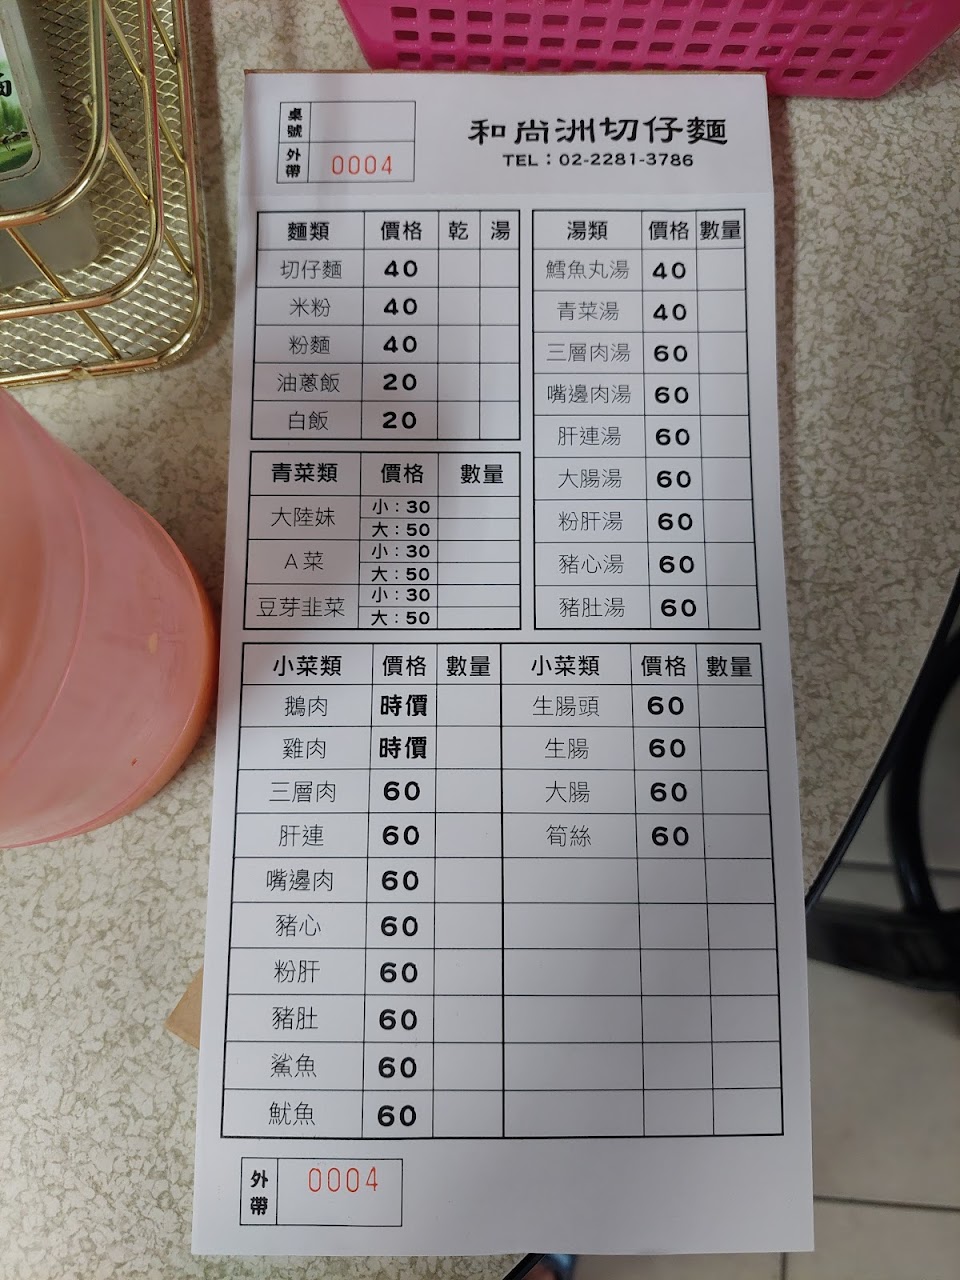 桌號
外帶 0004
和尚洲切仔麵
TEL：02-2281-3786
麵類 價格 乾 湯
切仔麵 40
米粉 40
粉麵 40
油蔥飯 20
白飯 20
青菜類 價格 數量
大陸妹 小：30
大：50
A菜 小：30
大：50
豆芽韭菜 小：30
大：50
湯類 價格 數量
鱈魚丸湯 40
青菜湯 40
三層肉湯 60
嘴邊肉湯 60
肝連湯 60
大腸湯 60
粉肝湯 60
豬心湯 60
豬肚湯 60
小菜類 價格 數量
鵝肉 時價
雞肉 時價
三層肉 60
肝連 60
嘴邊肉 60
豬心 60
粉肝 60
豬肚 60
鯊魚 60
魷魚 60
小菜類 價格 數量
生腸頭 60
生腸 60
大腸 60
筍絲 60
外帶 0004